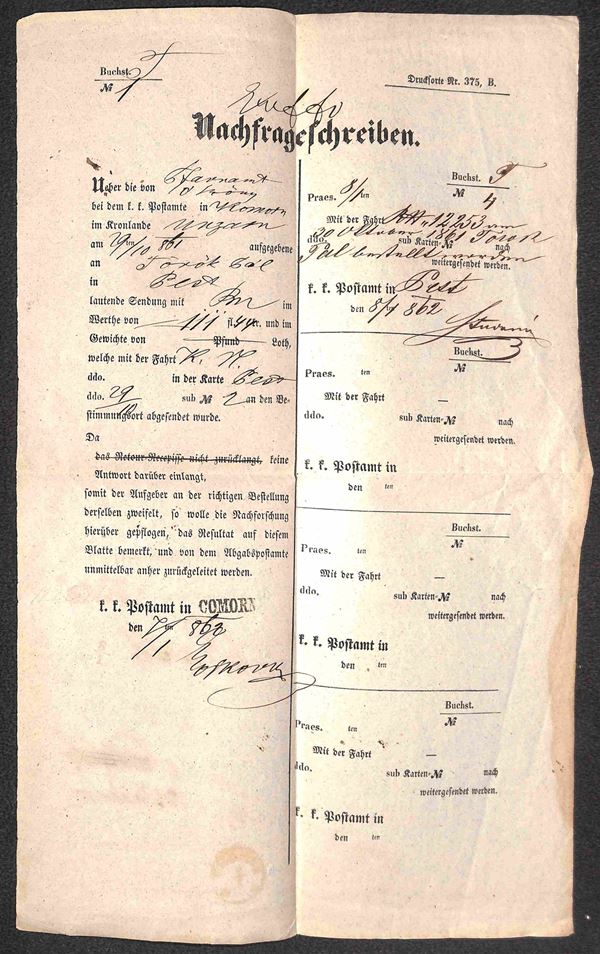 Buchst. T
№ 1
Drucksorte Nr. 375, B.
Nachfrageschreiben.
Ueber die von
bei dem k. k. Postamte in Komorn
im Kronlande Ungarn
am 29/10 861 aufgegebene
an Török Pál
in Pest
lautende Sendung mit im
Werthe von 111 fl. 44 kr. und im
Gewichte von — Pfund — Loth,
welche mit der Fahrt
ddo. in der Karte Pest
ddo. 29/10 sub № 2 an den Be-
stimmungsort abgesendet wurde.
Da
das Retour-Recepisse nicht zurücklangt, keine
Antwort darüber einlangt,
somit der Aufgeber an der richtigen Bestellung
derselben zweifelt, so wolle die Nachforschung
hierüber gepflogen, das Resultat auf diesem
Blatte bemerkt, und von dem Abgabspostamte
unmittelbar anher zurückgeleitet werden.
k. k. Postamt in COMORN
den 7/1 862
Buchst. T
Praes. 8/1 ten № 4
Mit der Fahrt 12253 am
ddo. 30 Oktober 1861 Török sub Karten-№ nach
Pál bestellt worden weitergesendet werden.
k. k. Postamt in Pest
den 8/1 862
Buchst.
Praes. ten №
Mit der Fahrt —
ddo. sub Karten-№ nach
weitergesendet werden.
k. k. Postamt in
den ten
Buchst.
Praes. ten №
Mit der Fahrt —
ddo. sub Karten-№ nach
weitergesendet werden.
k. k. Postamt in
den ten
Buchst.
Praes. ten №
Mit der Fahrt —
ddo. sub Karten-№ nach
weitergesendet werden.
k. k. Postamt in
den ten